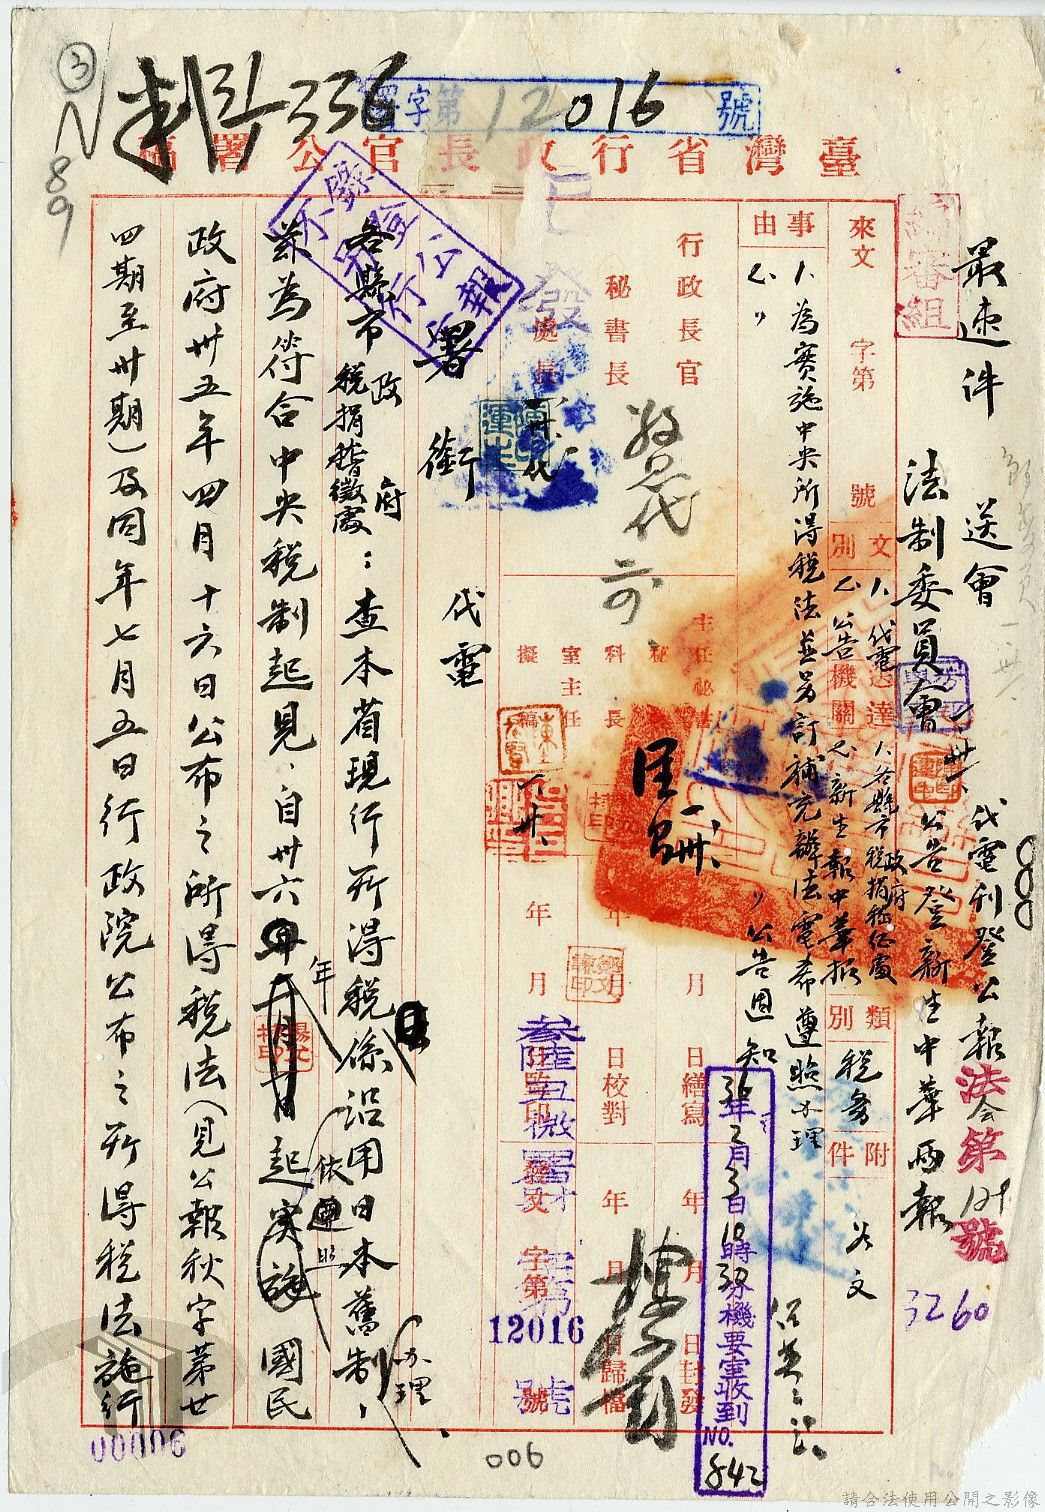 ③
N
89
署字第12016號
臺灣省行政長官公署稿
編審組
最速件
送會
法制委員會
代電刊登公報
公告登新生中華兩報
法會第129號
3260
來文
字第
號
文別
1、代電
2、公告
送達機關
1、各縣市政府稅捐稽征處
2、新生報中華報
類別
稅務
附件
如文
事由
1、為實施中央所得稅法並另訂補充辦法電希遵照办理
2、〃
〃公告週知
行政長官
秘書長
處長
主任秘書
秘書
科長
室主任
擬稿
年
月
日繕寫
年
月
日校對
年
月
日監印
年
月
日封發
年
月
日歸檔
發文
字第
12016
號
36年2月3日10時30分機要室收到
NO.842
已發
錄登公報
不另行文
署銜
代電
各縣市政府稅捐稽徵處：查本省現行所得稅係沿用日本舊制，
茲為符合中央稅制起見，自卅六年起依照國民
办理
政府卅五年四月十六日公布之所得稅法（見公報秋字第廿
四期至卅期）及同年七月五日行政院公布之所得稅法施行
00006
006
請合法使用公開之影像